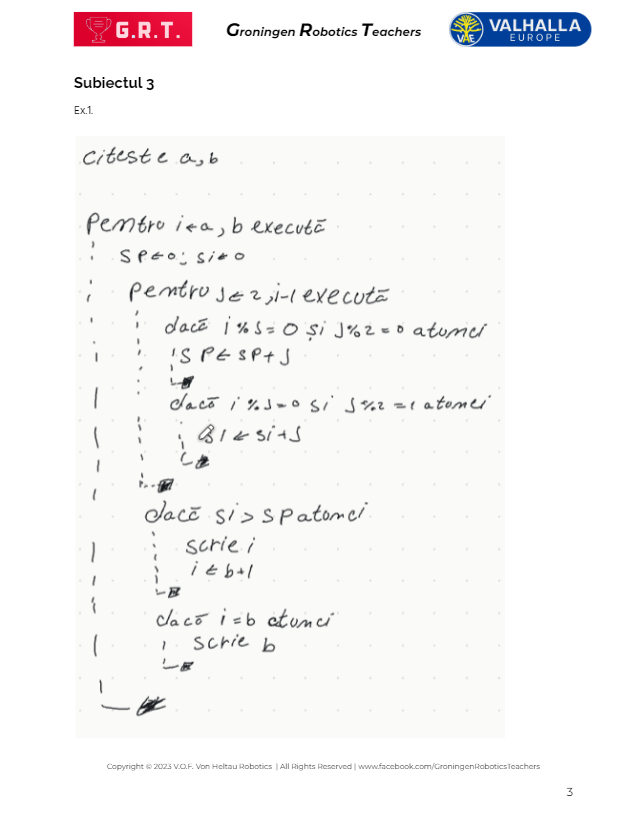 G.R.T.
Groningen Robotics Teachers
VAE
VALHALLA
EUROPE
Subiectul 3
Ex.1.
citeste a,b
Pentru i←a, b execută
SP←0; si←0
pentru j←2, i-1 execută
dacă i%j=0 și j%2=0 atunci
SP←SP+j
dacă i%j=0 si j%2=1 atunci
si←si+j
dacă si>SP atunci
scrie i
i←b+1
dacă i=b atunci
scrie b
Copyright © 2023 V.O.F. Von Heltau Robotics | All Rights Reserved | www.facebook.com/GroningenRoboticsTeachers
3